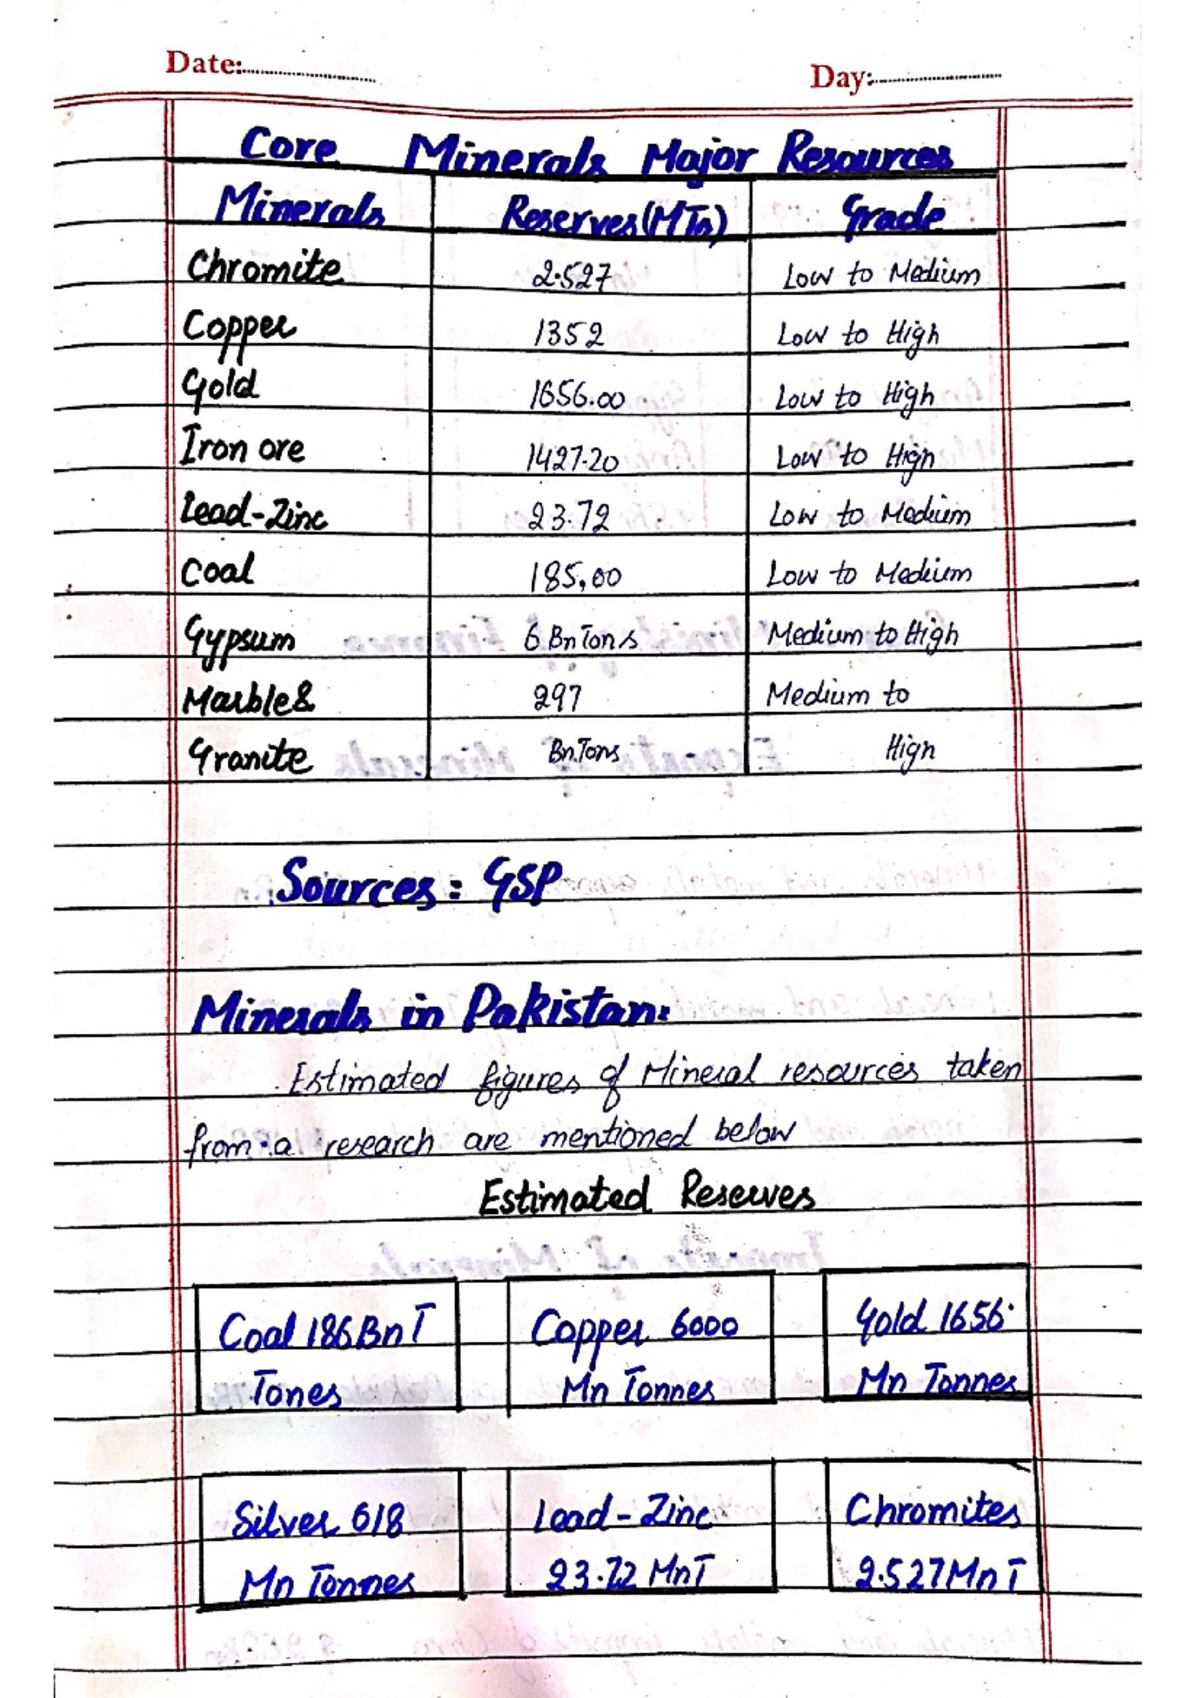 Date:
Day:
Core Minerals Major Resources
Minerals Reserves(MTn) Grade
Chromite 2.527 Low to Medium
Copper 1352 Low to High
Gold 1656.00 Low to High
Iron ore 1427.20 Low to High
Lead-Zinc 23.72 Low to Medium
Coal 185,00 Low to Medium
Gypsum 6 Bn Tons Medium to High
Marble & 297 Medium to
Granite Bn.Tons High
Sources : GSP
Minerals in Pakistan:
Estimated figures of Mineral resources taken
from a research are mentioned below
Estimated Reserves
Coal 186 Bn T Copper 6000 Gold 1656
Tones Mn Tonnes Mn Tonnes
Silver 618 Lead-Zinc Chromites
Mn Tonnes 23.72 MnT 2.527 Mn T